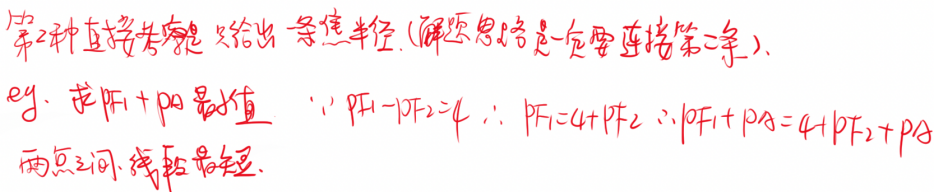 第2种直接考察是只给出一条焦半径.(解题思路是一定要连接第二条).
eg. 求PF₁+PA最小值 ∵PF₁-PF₂=4 ∴PF₁=4+PF₂ ∴PF₁+PA=4+PF₂+PA
两点之间.线段最短.